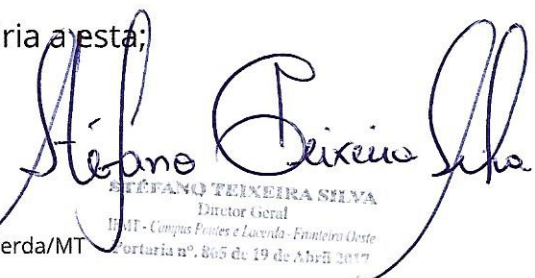 ria a esta;
Stéfano Teixeira Silva
STÉFANO TEIXEIRA SILVA
Diretor Geral
IFMT - Campus Pontes e Lacerda - Fronteira Oeste
erda/MT
Portaria nº. 865 de 19 de Abril 2017